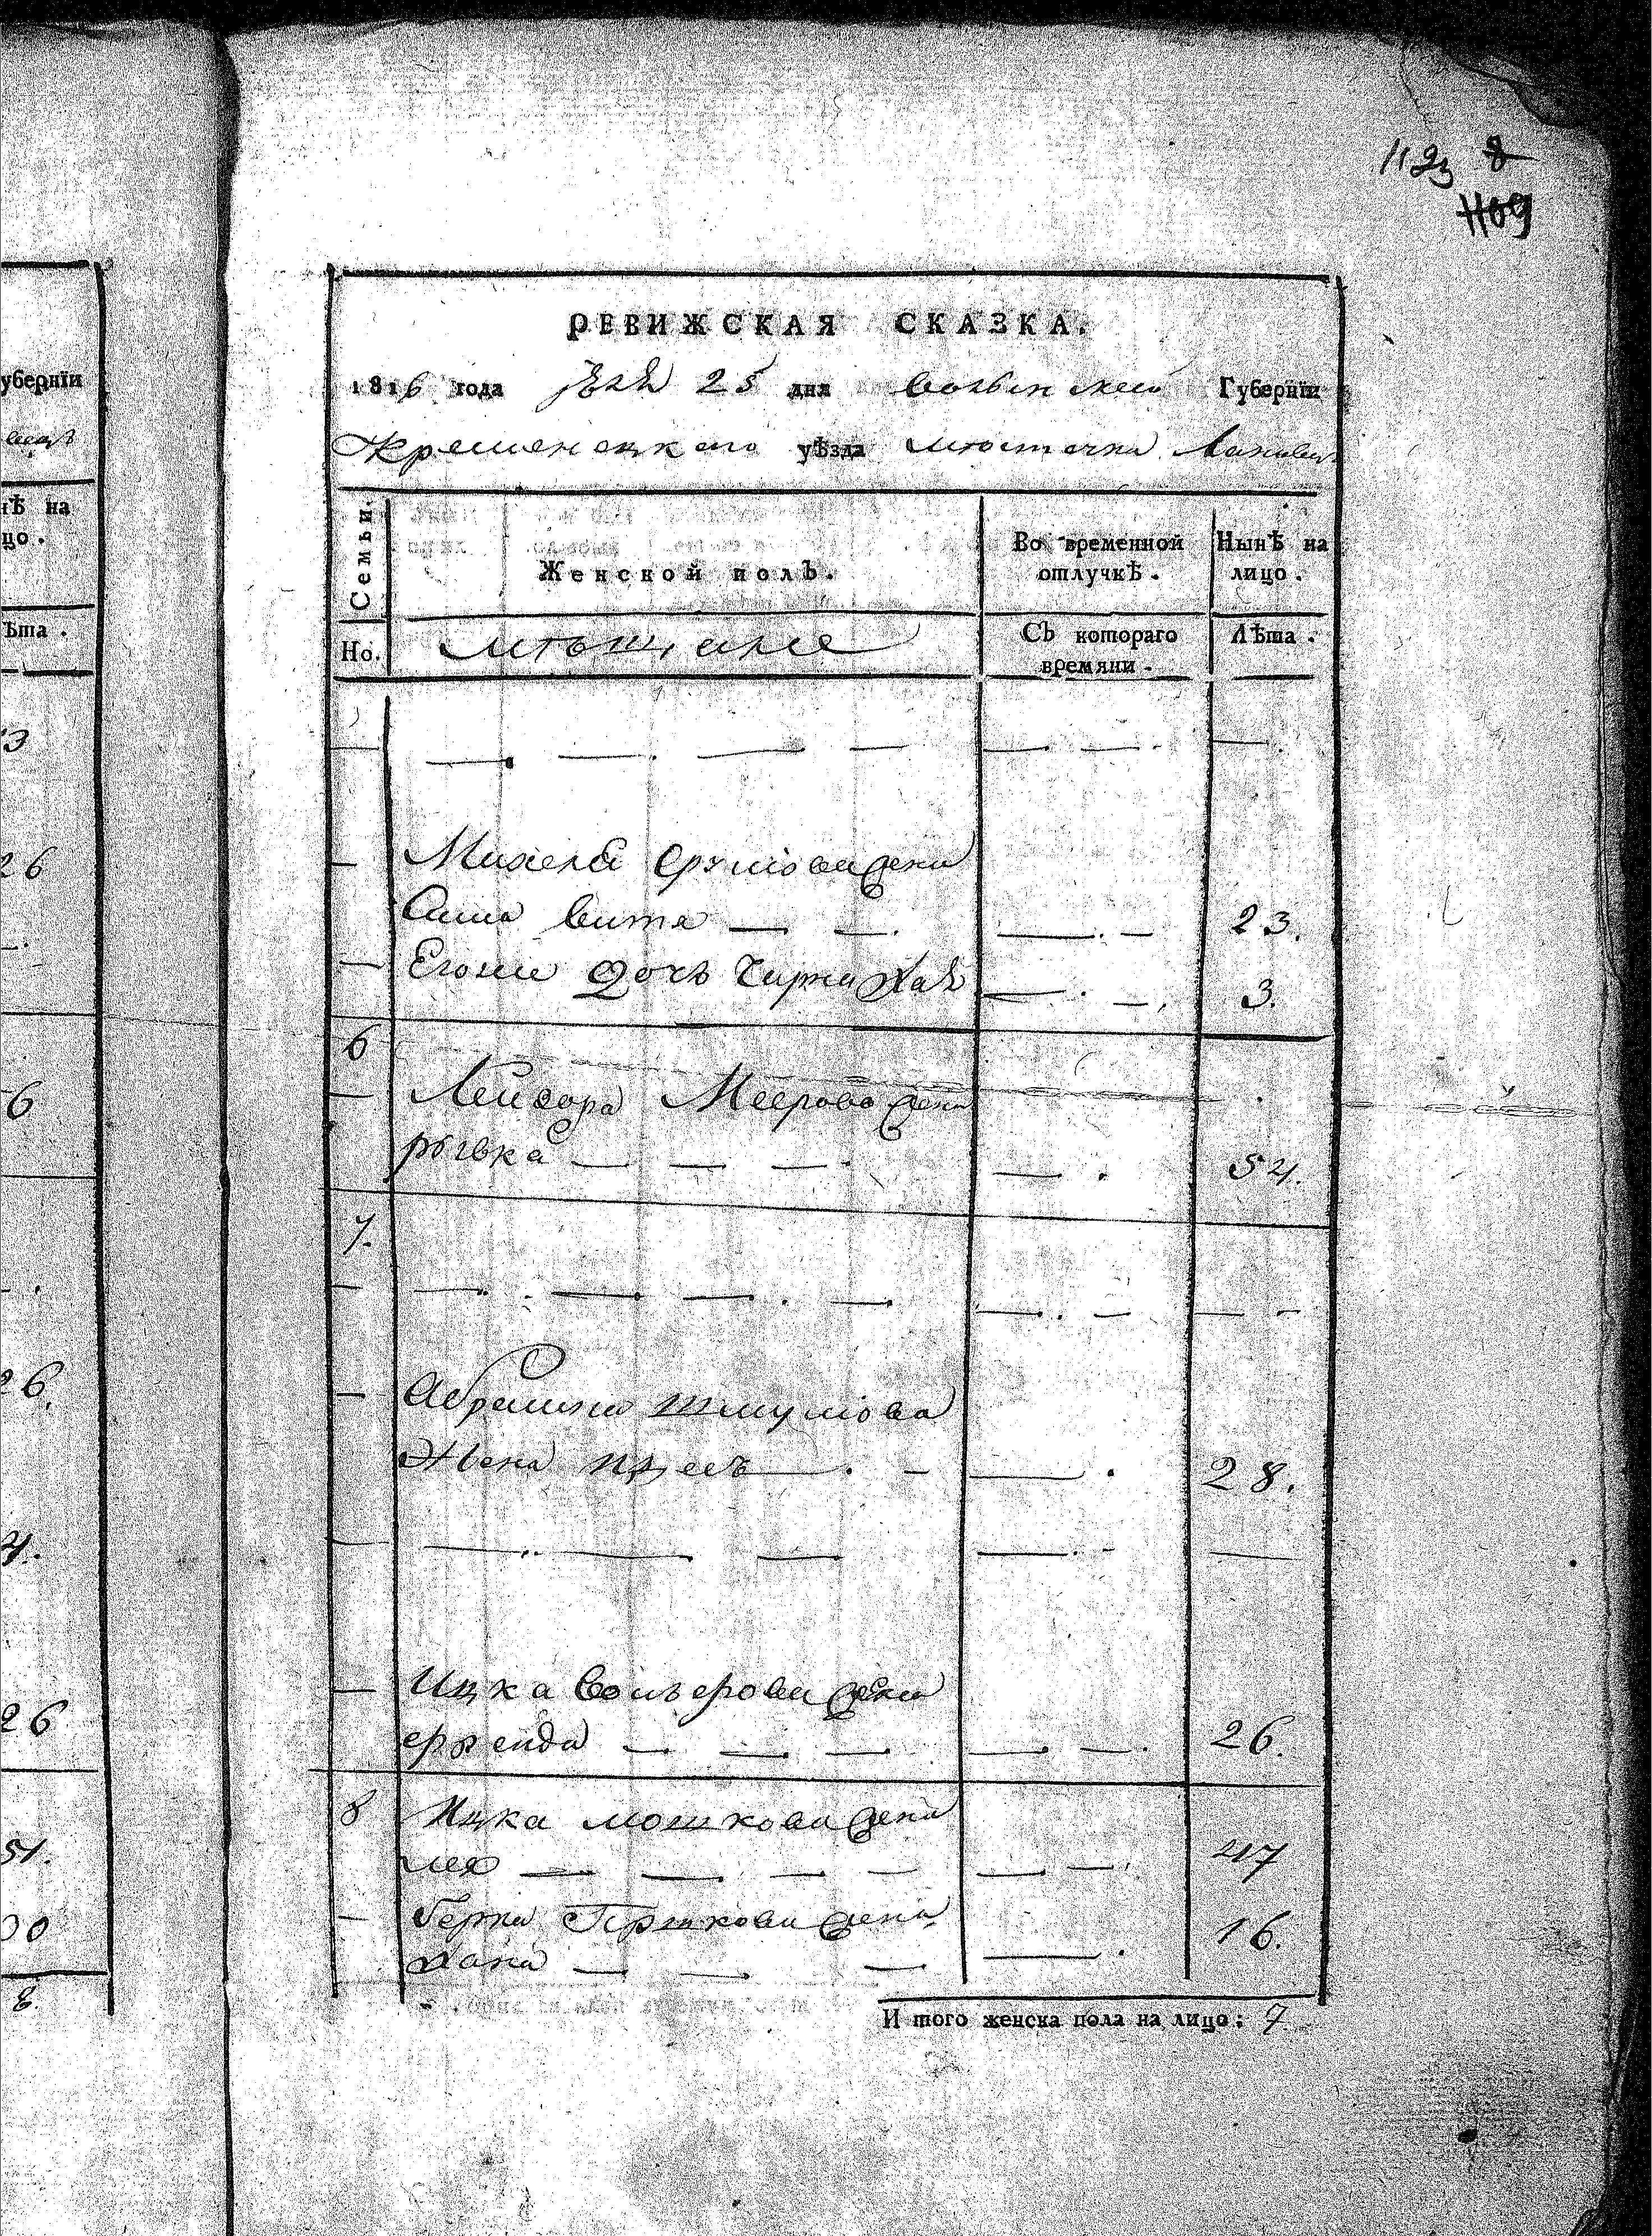 убернїи
нѢ на
цо.
Ѣта.
3
26
6
26.
4.
26
51.
00
8
1123 8
1109
РЕВИЖСКАЯ СКАЗКА.
1816 года 25 дня Волынской Губернїи
Кременецкаго уѢзда мѣстечка
Семьи.
Женской полЪ.
Во временной отлучкѢ.
НынѢ на лицо.
Но.
мѣщане
СЪ котораго времяни.
ЛѢта.
— — — —
Михеля Сруліова жена
вита — — 23.
Егоже дочь Хая 3.
6
Лейзора Меерова жена
рывка — — — 54.
7.
— — — —
Абрамка Шмуліова
Жена 28.
— — —
Ицка жена
— — — 26.
8 Ицка мошкова жена
лея — — — — 47
Берка Гершкова жена
хана — — — 16.
И того женска пола на лицо: 7